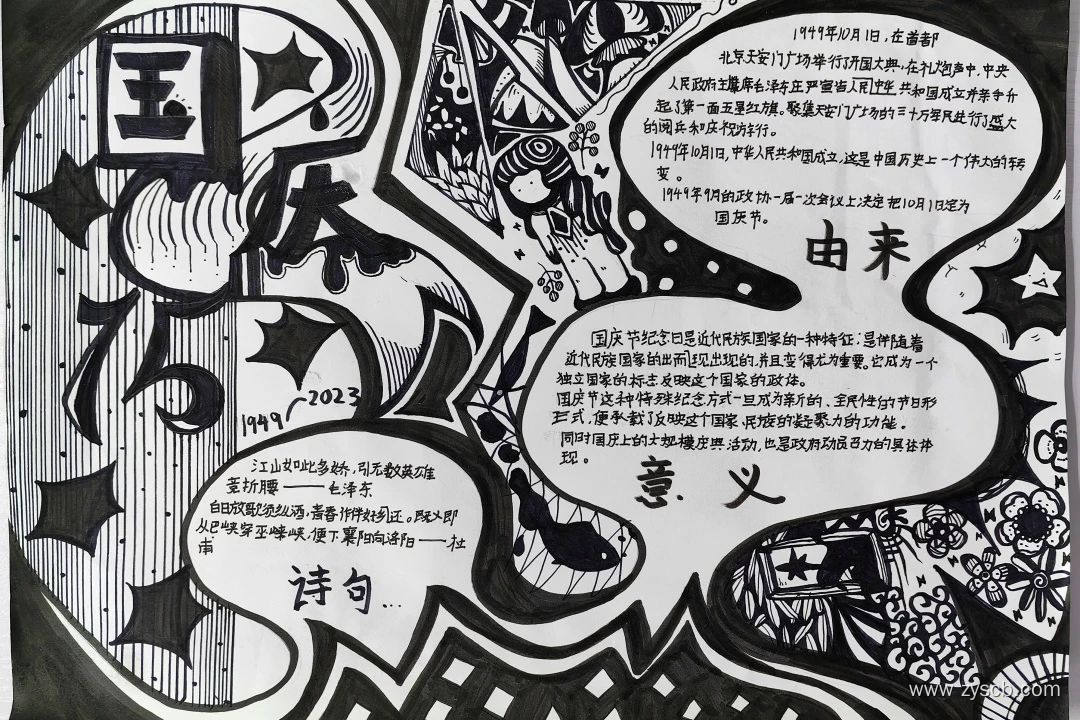 国庆
1949年10月1日,在首都
北京天安门广场举行了开国大典,在礼炮声中,中央
人民政府主席毛泽东庄严宣告人民中华共和国成立并亲手升
起了第一面五星红旗。聚集天安门广场的三十万军民进行了盛大
的阅兵和庆祝游行。
1949年10月1日,中华人民共和国成立,这是中国历史上一个伟大的转
变。
1949年9月的政协一届一次会议上决定把10月1日定为
国庆节。
由来
国庆节纪念日是近代民族国家的一种特征,是伴随着
近代民族国家的出而现出现的,并且变得尤为重要。它成为一个
独立国家的标志反映这个国家的政体。
国庆节这种特殊纪念方式一旦成为新的、全民性的节日形
形式,便承载了反映这个国家、民族的凝聚力的功能。
同时国庆上的大规模庆典活动,也是政府动员百力的具体体
现。
意义
1949 2023
江山如此多娇,引无数英雄
竞折腰——毛泽东
白日放歌须纵酒,青春作伴好还。既义即
从巴峡穿巫峰峡,便下襄阳向洛阳——杜
甫
诗句...
www.zyscb.com